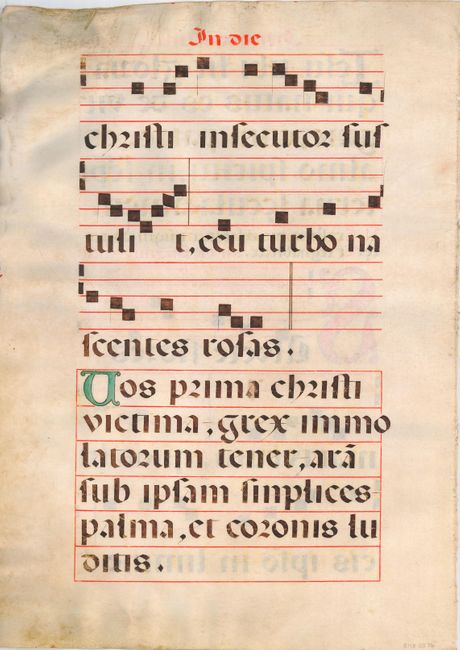 In die
christi insecutor sus
tuli t, ceu turbo na
scentes rosas.
Vos prima christi
victima, grex immo
latorum tener, arã
sub ipsam sinplices
palma, et coronis lu
ditis.